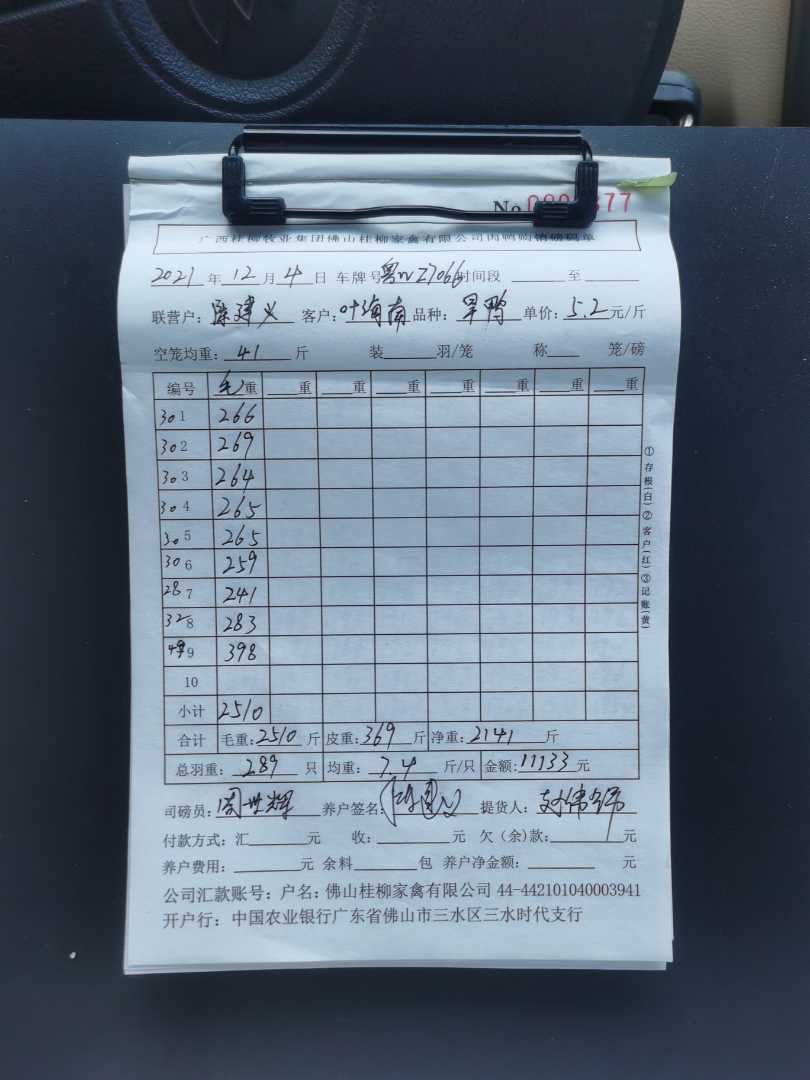 No
377
广西桂柳牧业集团佛山桂柳家禽有限公司肉鸭购销磅码单
2021年12月4日 车牌号粤WZ7066时间段 至
联营户: 陈建义 客户: 叶海南 品种: 旱鸭 单价: 5.2元/斤
空笼均重: 41 斤 装 羽/笼 称 笼/磅
编号 毛重 重 重 重 重 重 重 重
30 1 266
30 2 269
30 3 264
30 4 265
30 5 265
30 6 259
28 7 241
32 8 283
9 398
10
小计 2510
合计 毛重:2510斤 皮重:369斤 净重:2141斤
总羽重: 289 只 均重: 7.4 斤/只 金额:11133元
司磅员: 周世辉 养户签名: 提货人:
付款方式: 汇 元 收: 元 欠(余)款: 元
养户费用: 元 余料 包 养户净金额: 元
公司汇款账号: 户名: 佛山桂柳家禽有限公司 44-442101040003941
开户行: 中国农业银行广东省佛山市三水区三水时代支行
①存根(白)②客户(红)③记账(黄)